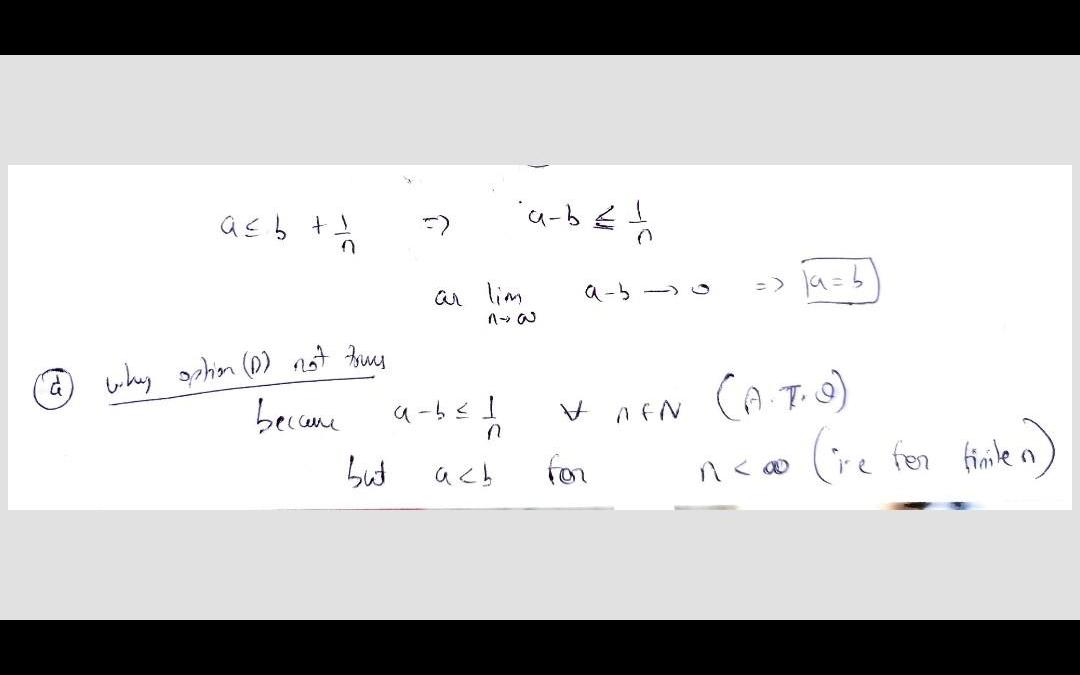 a ≤ b + 1/n => a-b ≤ 1/n
as lim n→∞ a-b → 0 => a=b
(d) why option (D) not true
because a-b ≤ 1/n ∀ n ∈ N (A.T.Q)
but a<b for n < ∞ (i.e for finite n)